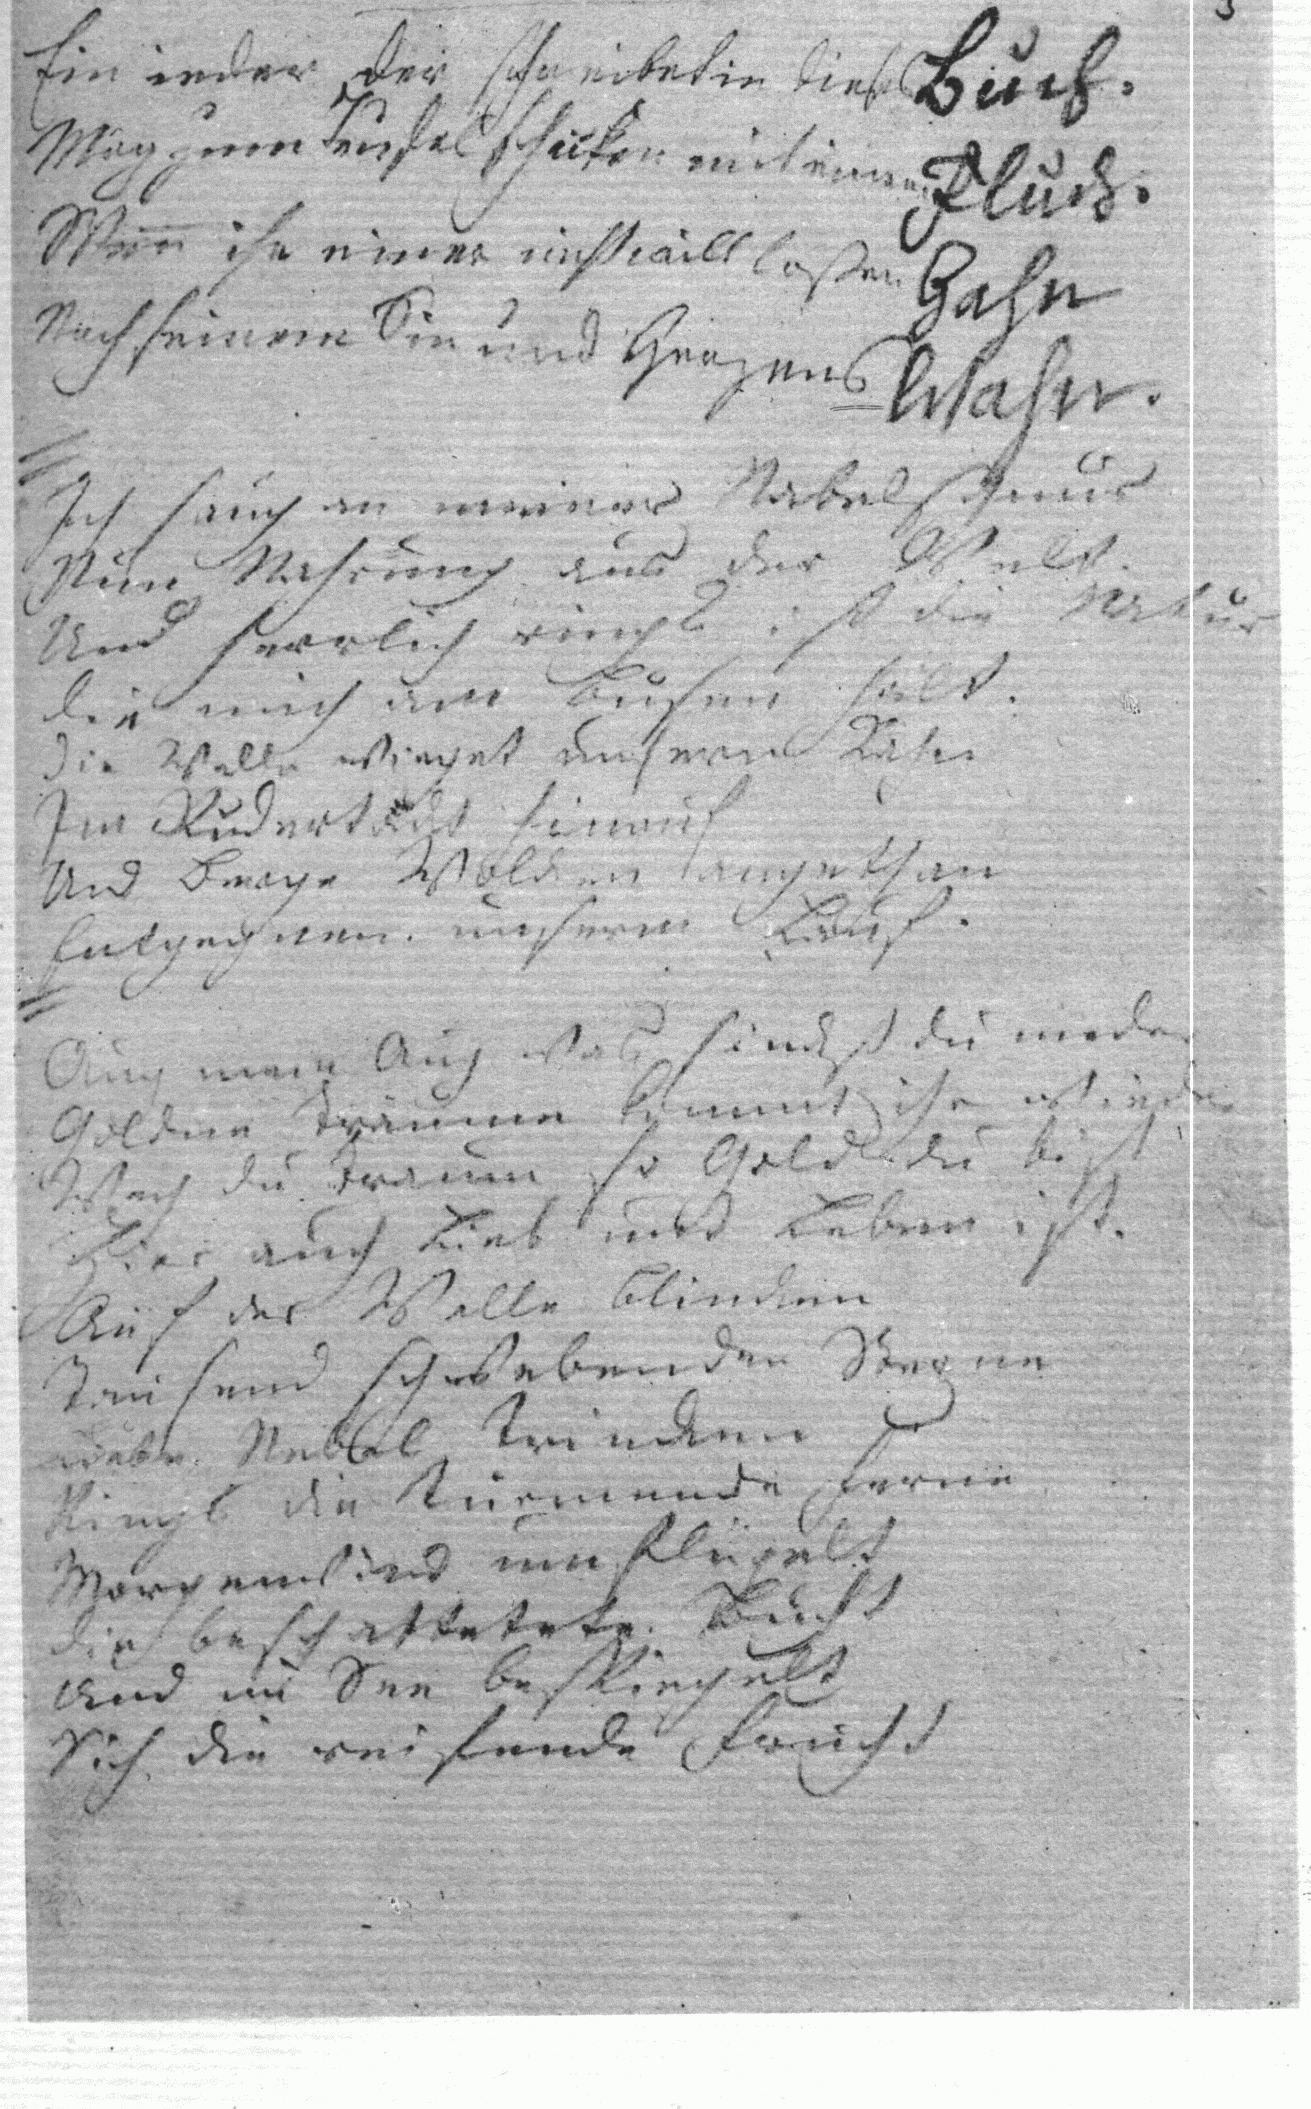 3
Ein ieder der schreibet in dieses Buch.
Mag zum Teufel schicken mit einem Fluch.
Wenn ihr einer nicht will lassen Gahn
Nach seinem Sin und Herzens Wahn.
Ich saug an meiner Nabelschnur
Nun Nahrung aus der Welt.
Und herrlich rings ist die Natur
die mich am Busen hält.
Die Welle wieget unsern Kahn
Im Rudertackt hinauf
Und Berge Wolcken angethan
Entgegnen unserm Lauf.
Aug mein Aug was sinckst du nieder
Goldne Träume kommt ihr wieder
Weg du Traum so Gold du bist
Hier auch Lieb und Leben ist.
Auf der Welle blincken
Tausend schwebende Sterne
Nebel Trincken
Rings die türmende Ferne
Morgenwind umflügelt
die beschattete Bucht
Und im See bespiegelt
Sich die reifende Frucht